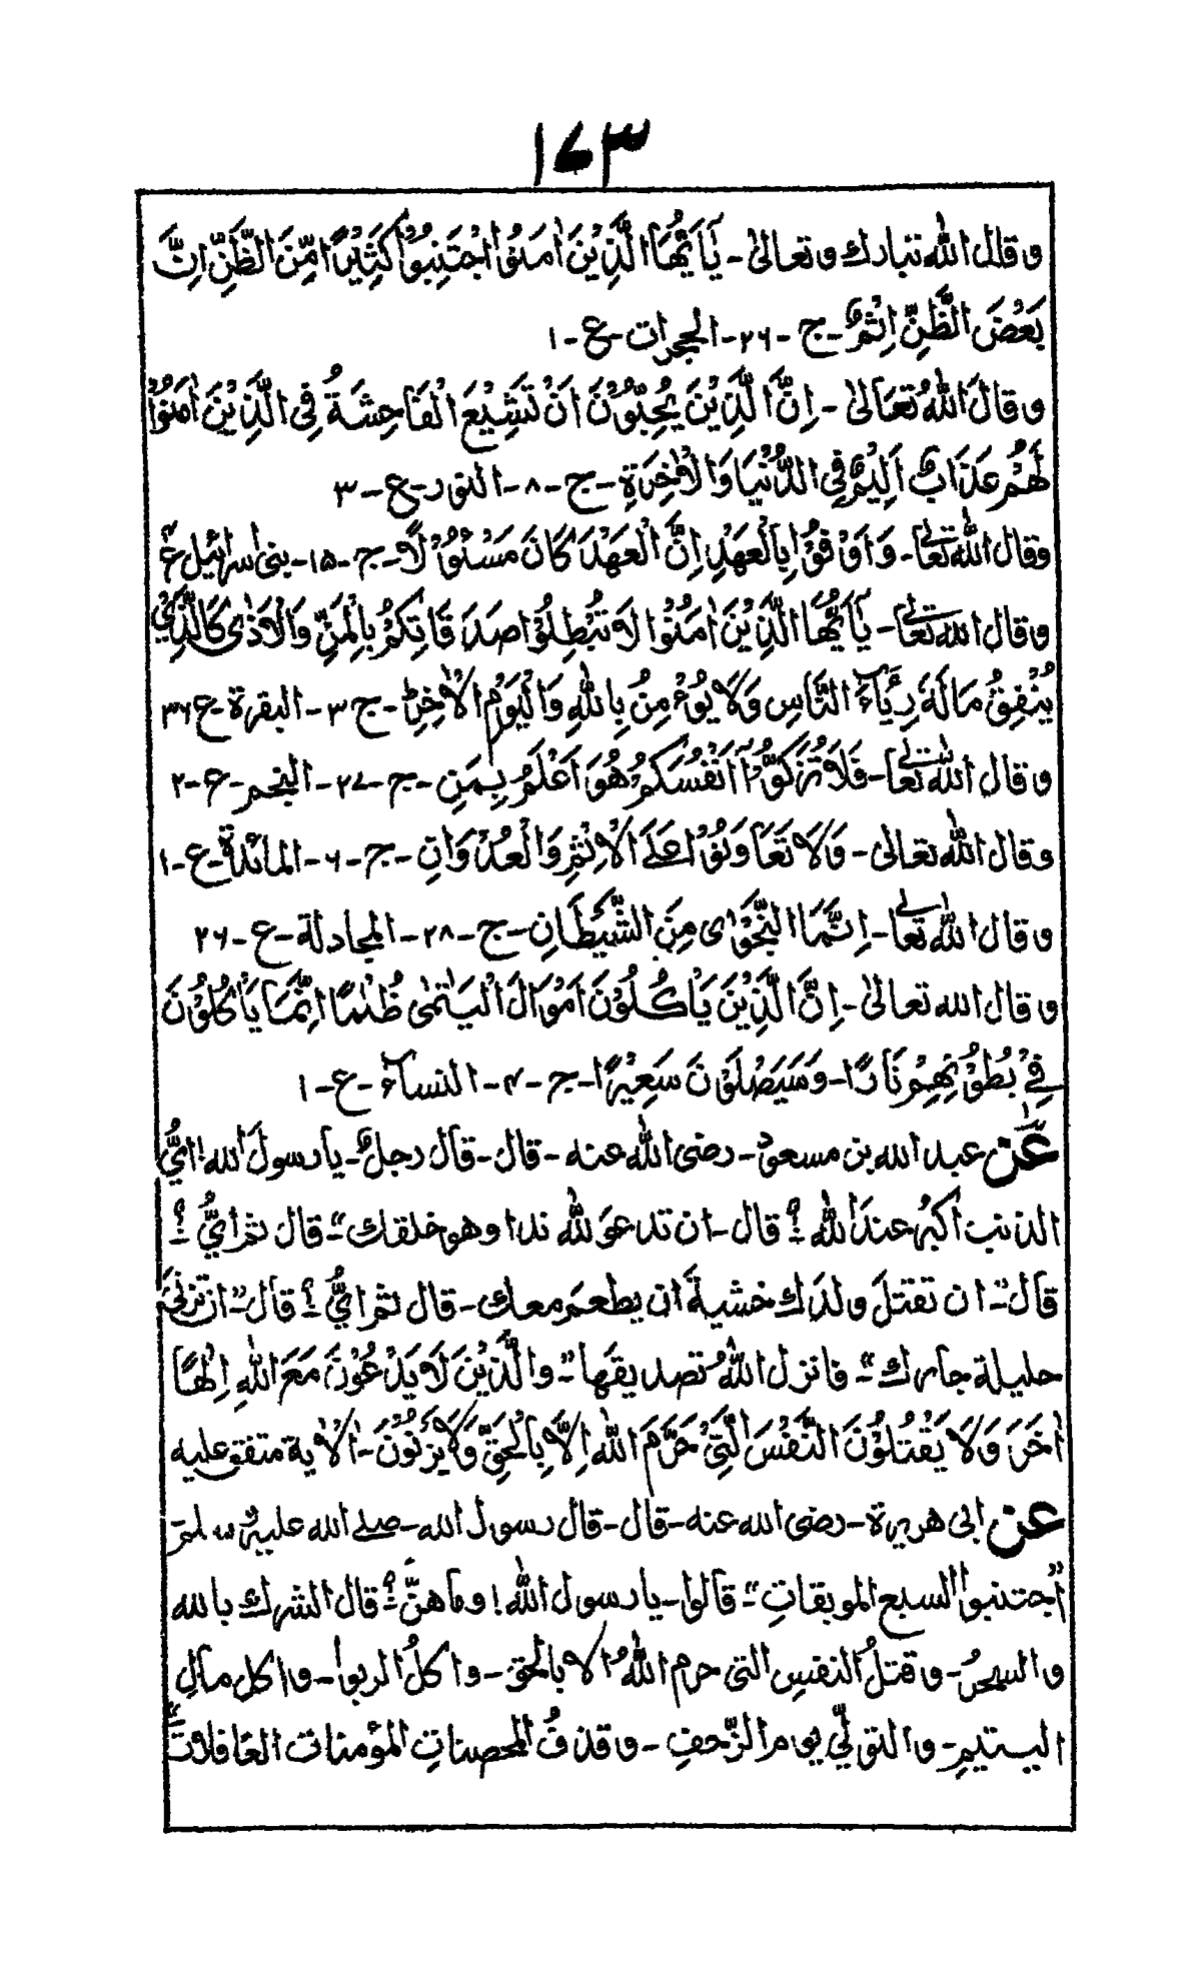 ۱۷۳
وقال الله تبارك وتعالىٰ - يٰۤاَيُّهَا الَّذِيْنَ اٰمَنُوا اجْتَنِبُوْا كَثِيْرًا مِّنَ الظَّنِّ اِنَّ
بَعْضَ الظَّنِّ اِثْمٌ - ج - ۲۶ - الحجرات - ع - ۱
وقَالَ اللهُ تَعَالىٰ - اِنَّ الَّذِيْنَ يُحِبُّوْنَ اَنْ تَشِيْعَ الْفَاحِشَةُ فِى الَّذِيْنَ اٰمَنُوْا
لَهُمْ عَذَابٌ اَلِيْمٌ فِى الدُّنْيَا وَالْاٰخِرَةِ - ج - ۸ - النور - ع - ۳
وقال الله تعالىٰ - وَاَوْفُوْا بِالْعَهْدِ اِنَّ الْعَهْدَ كَانَ مَسْئُوْلًا - ج - ۱۵ - بنى اسرائيل ع
وقال الله تعالىٰ - يٰۤاَيُّهَا الَّذِيْنَ اٰمَنُوْا لَا تُبْطِلُوْا صَدَقَاتِكُمْ بِالْمَنِّ وَالْاَذٰى كَالَّذِىْ
يُنْفِقُ مَالَهٗ رِئَآءَ النَّاسِ وَلَا يُؤْمِنُ بِاللّٰهِ وَالْيَوْمِ الْاٰخِرِ - ج - ۳ - البقرة - ع ۳۶
وقال الله تعالىٰ - فَلَا تُزَكُّوْۤا اَنْفُسَكُمْ هُوَ اَعْلَمُ بِمَنِ - ج - ۲۷ - النجم - ع - ۲
وقال الله تعالىٰ - وَلَا تَعَاوَنُوْا عَلَى الْاِثْمِ وَالْعُدْوَانِ - ج - ۶ - المائدة - ع - ۱
وقال الله تعالىٰ - اِنَّمَا النَّجْوٰى مِنَ الشَّيْطَانِ - ج - ۲۸ - المجادلة - ع - ۲۶
وقال الله تعالىٰ - اِنَّ الَّذِيْنَ يَاْكُلُوْنَ اَمْوَالَ الْيَتٰمٰى ظُلْمًا اِنَّمَا يَاْكُلُوْنَ
فِىْ بُطُوْنِهِمْ نَارًا - وَسَيَصْلَوْنَ سَعِيْرًا - ج - ۴ - النسآء - ع - ۱
عَن عبد الله بن مسعود - رضى الله عنه - قال - قال رجلٌ - يا رسولَ الله! اىُّ
الذنب اكبرُ عندَ الله؟ قال - ان تدعوَ لله ندا وهو خلقك " - قال ثم اىُّ؟
قال " - ان تقتلَ ولدَك خشيةَ ان يطعم معك - قال ثم اىُّ؟ قال " - ان تزنىَ
حليلة جارك " - فانزل اللهُ تصديقَها " - وَالَّذِيْنَ لَا يَدْعُوْنَ مَعَ اللهِ اِلٰهًا
اٰخَرَ وَلَا يَقْتُلُوْنَ النَّفْسَ الَّتِىْ حَرَّمَ اللهُ اِلَّا بِالْحَقِّ وَلَا يَزْنُوْنَ - الْاٰية متفق عليه
عن ابى هريرة - رضى الله عنه - قال - قال رسول الله - صلے الله عليه وسلم
"اجتنبوا السبع الموبقاتِ " - قالوا - يا رسول الله! وما هنَّ؟ قال الشرك بالله
والسحرُ - وقتلُ النفسِ التى حرم اللهُ الا بالحق - واكلُ الربوا - واكل مالِ
اليتيمِ - والتولّى يوم الزَّحفِ - وقذفُ المحصناتِ المؤمنات الغافلات"